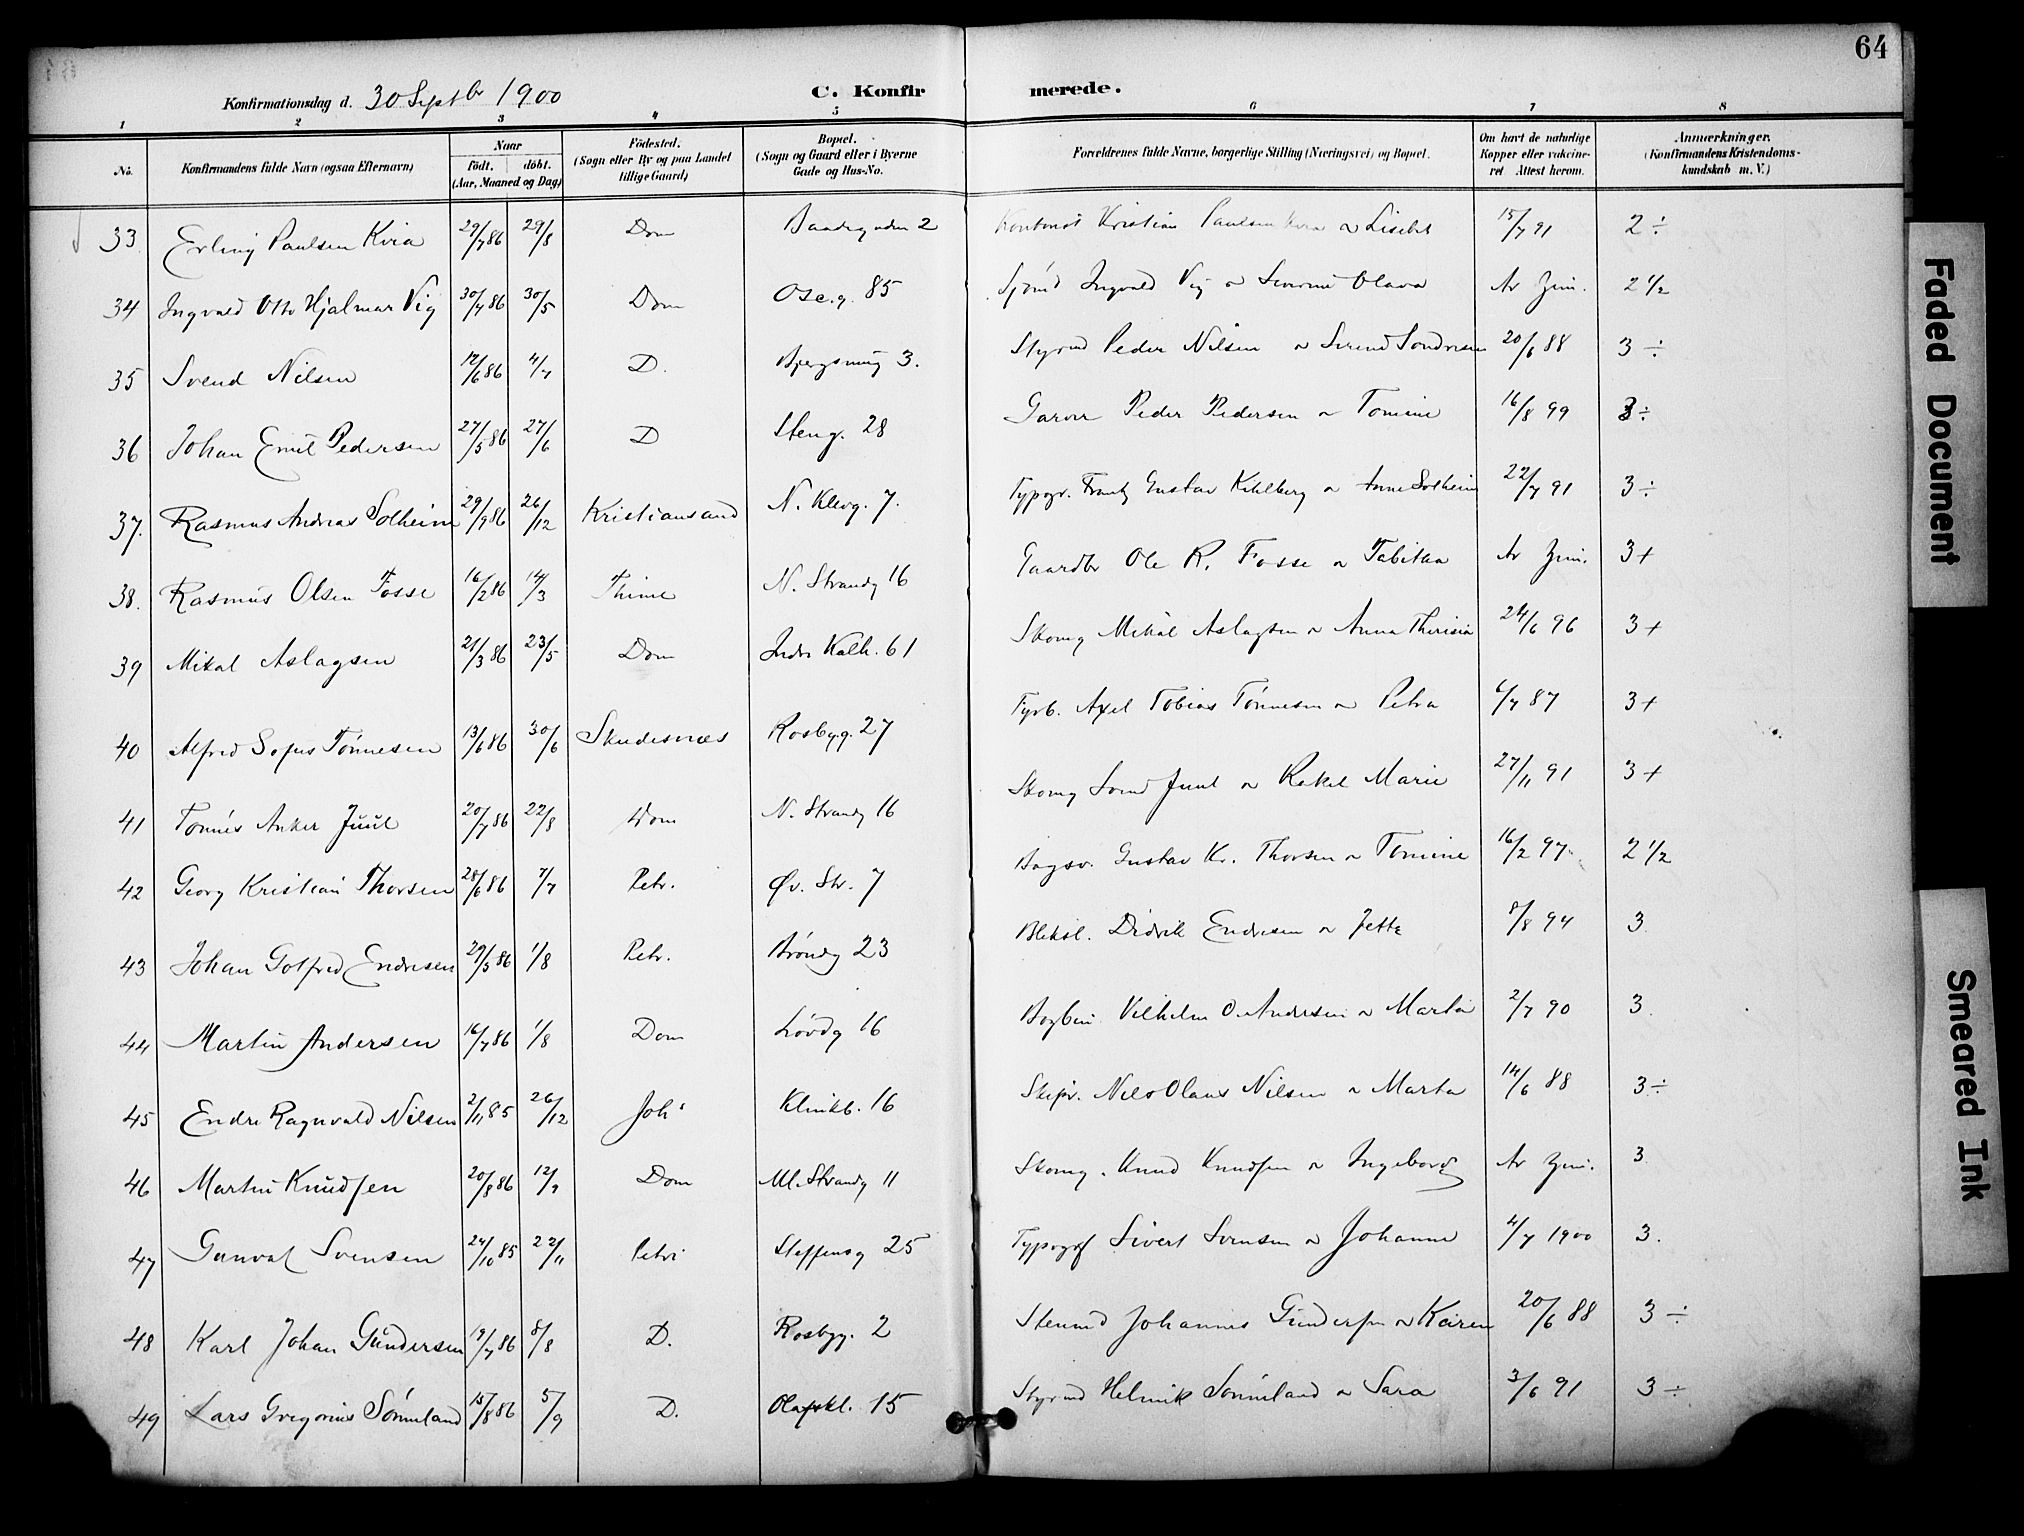 64
Konfirmationsdag d. 30 Septbr 1900 C. Konfirmerede.
1 2 3 4 5 6 7 8
No. Konfirmandens fulde Navn (ogsaa Efternavn) Naar født. døbt. (Aar, Maaned og Dag) Fødested. (Sogn eller By og paa Landet tillige Gaard) Bopæl. (Sogn og Gaard eller i Byerne Gade og Hus-No. Forældrenes fulde Navne, borgerlige Stilling (Næringsvei) og Bopæl. Om havt de naturlige Kopper eller vakcineret Attest herom. Anmærkninger. (Konfirmandens Kristendomskundskab m. V.)
33 Erling Paulsen Kvia 29/7 86 29/8 Dom 2 Kristian Paulsen Kvia & Lisebet 15/7 91 2 ÷
34 Ingvald Otto Hjalmar Vig 30/4 86 30/5 Dom Ose.g. 85 Sjømd Ingvald Vig & Olava Av Zim. 2 1/2
35 Svend Nilsen 12/6 86 4/7 D. Bjergsmug 3. Styrmd Peder Nilsen & 20/6 88 3 ÷
36 Johan Emil Pedersen 27/5 86 27/6 D Steng. 28 Garver Peder Pedersen & Tomine 16/8 99 3 ÷
37. Rasmus Andreas Solheim 29/9 86 26/12 Kristiansand N. Klevg. 7. Typogr. Frantz Gustav & Anne Solheim 22/7 91 3 ÷
38. Rasmus Olsen Fosse 16/2 86 14/3 Thime N. Strandg 16 Gaardbr Ole R. Fosse & Tabitha Av Zim. 3 +
39 Mikal Aslagsen 21/3 86 23/5 Dom Indr Kalh. 61 Skomg Mikal Aslagsen & Anna Therisia 24/6 96 3 +
40 Alfred Sofus Tønnesen 13/6 86 30/6 Skudesnæs Rosbgg. 27 Fyrb. Axel Tobias Tønnesen & Petra 6/7 87 3 +
41 Tønnes Anker Juul 20/7 86 22/8 Dom N. Strandg 16 Skomg Svend Juul & Rakel Marie 27/11 91 3 +
42 Georg Kristian Thorsen 28/6 86 7/7 Petr. Øv. Str. 7 Gustav Kr. Thorsen & Tomine 16/2 97. 2 1/2
43 Johan Gotfred Endresen 29/5 86 1/8 Petr. Brøndg 23 Bliksl. Didrik Endresen & Jette 8/8 94 3.
44 Martin Andersen 16/7 86 1/8 Dom Løvdg 16 Bogbin. Vilhelm O. Andersen & Marta 2/7 90 3.
45 Endre Ragnvald Nilsen 2/11 85 26/12 Joh's Klinkb. 16 Skipr. Nils Olaus Nilsen & Marta 14/6 88 3 ÷
46 Martin Knudsen 20/8 86 12/9 Dom Ml. Strandg 11 Skomg. Knud Knudsen & Ingeborg Av Zim. 3
47 Gunval Svensen 24/10 85 22/11 Petri Steffensg 25 Typogrf Sivert Svensen & Johanne 4/7 1900 3.
48 Karl Johan Gundersen 19/7 86 8/8 D. Rosbgg. 2 Johannes Gundersen & Karen 20/6 88 3 ÷
49 Lars Gregorius Sømeland 15/8 86 5/9 D. Olafskl. 15 Styrmd Helmik Sømeland & Sara 3/6 91 3 ÷
Faded Document
Smeared Ink